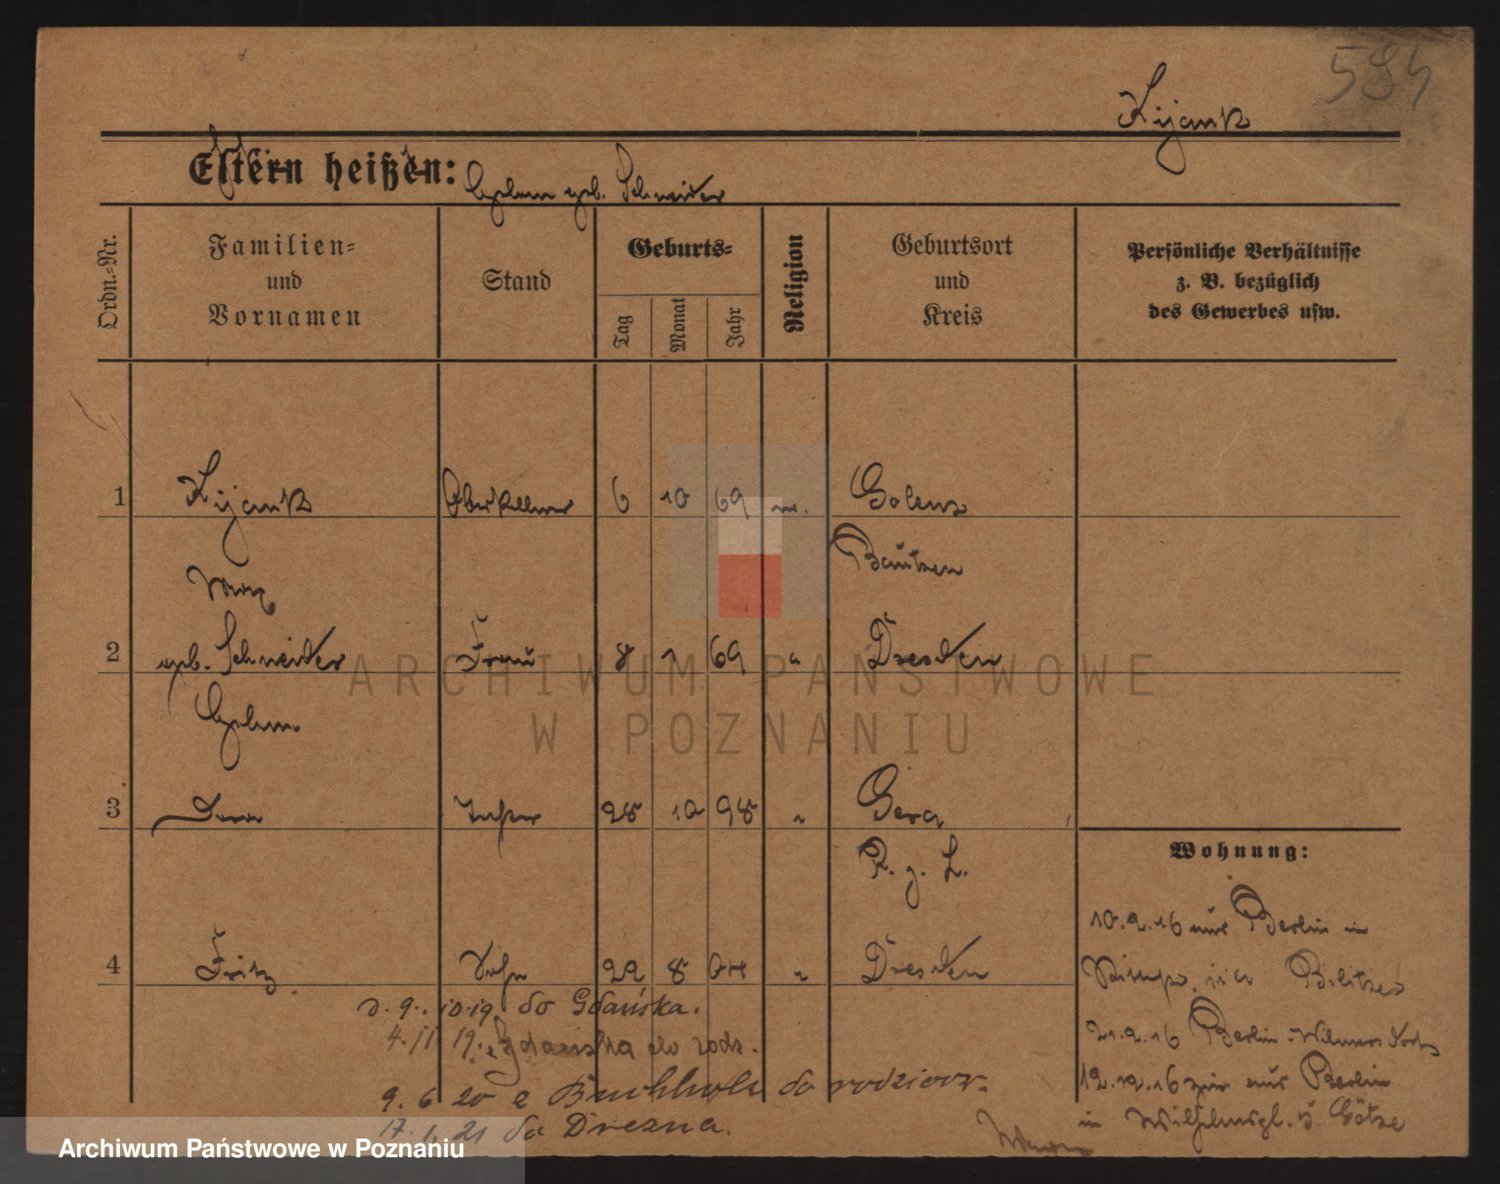 594
Kijank
Eltern heißen:
geb. Schneider
Ordn.=Nr.
Familien=
und
Vornamen
Stand
Geburts=
Tag
Monat
Jahr
Religion
Geburtsort
und
Kreis
Persönliche Verhältnisse
z. B. bezüglich
des Gewerbes usw.
1 Kijank Oberkellner 6 10 69 Golenz
Bautzen
Max
2 geb. Schneider Frau 8 1 69 " Dresden
3 Tochter 28 10 98 " Gera
R. j. L.
Wohnung:
4 Fritz Sohn 22 8 04 " Dresden
10.2.16 aus Berlin in
21.2.16 Berlin-Wilmersdorf
12.12.16 aus Berlin
in b Götze
d. 9. 10.19. do Gdańska.
4. 11 19. z Gdańska do rodz.
9. 6 20 z Buchholz do rodziców.
17. 1. 21 do Drezna.
ARCHIWUM PAŃSTWOWE
W POZNANIU
Archiwum Państwowe w Poznaniu